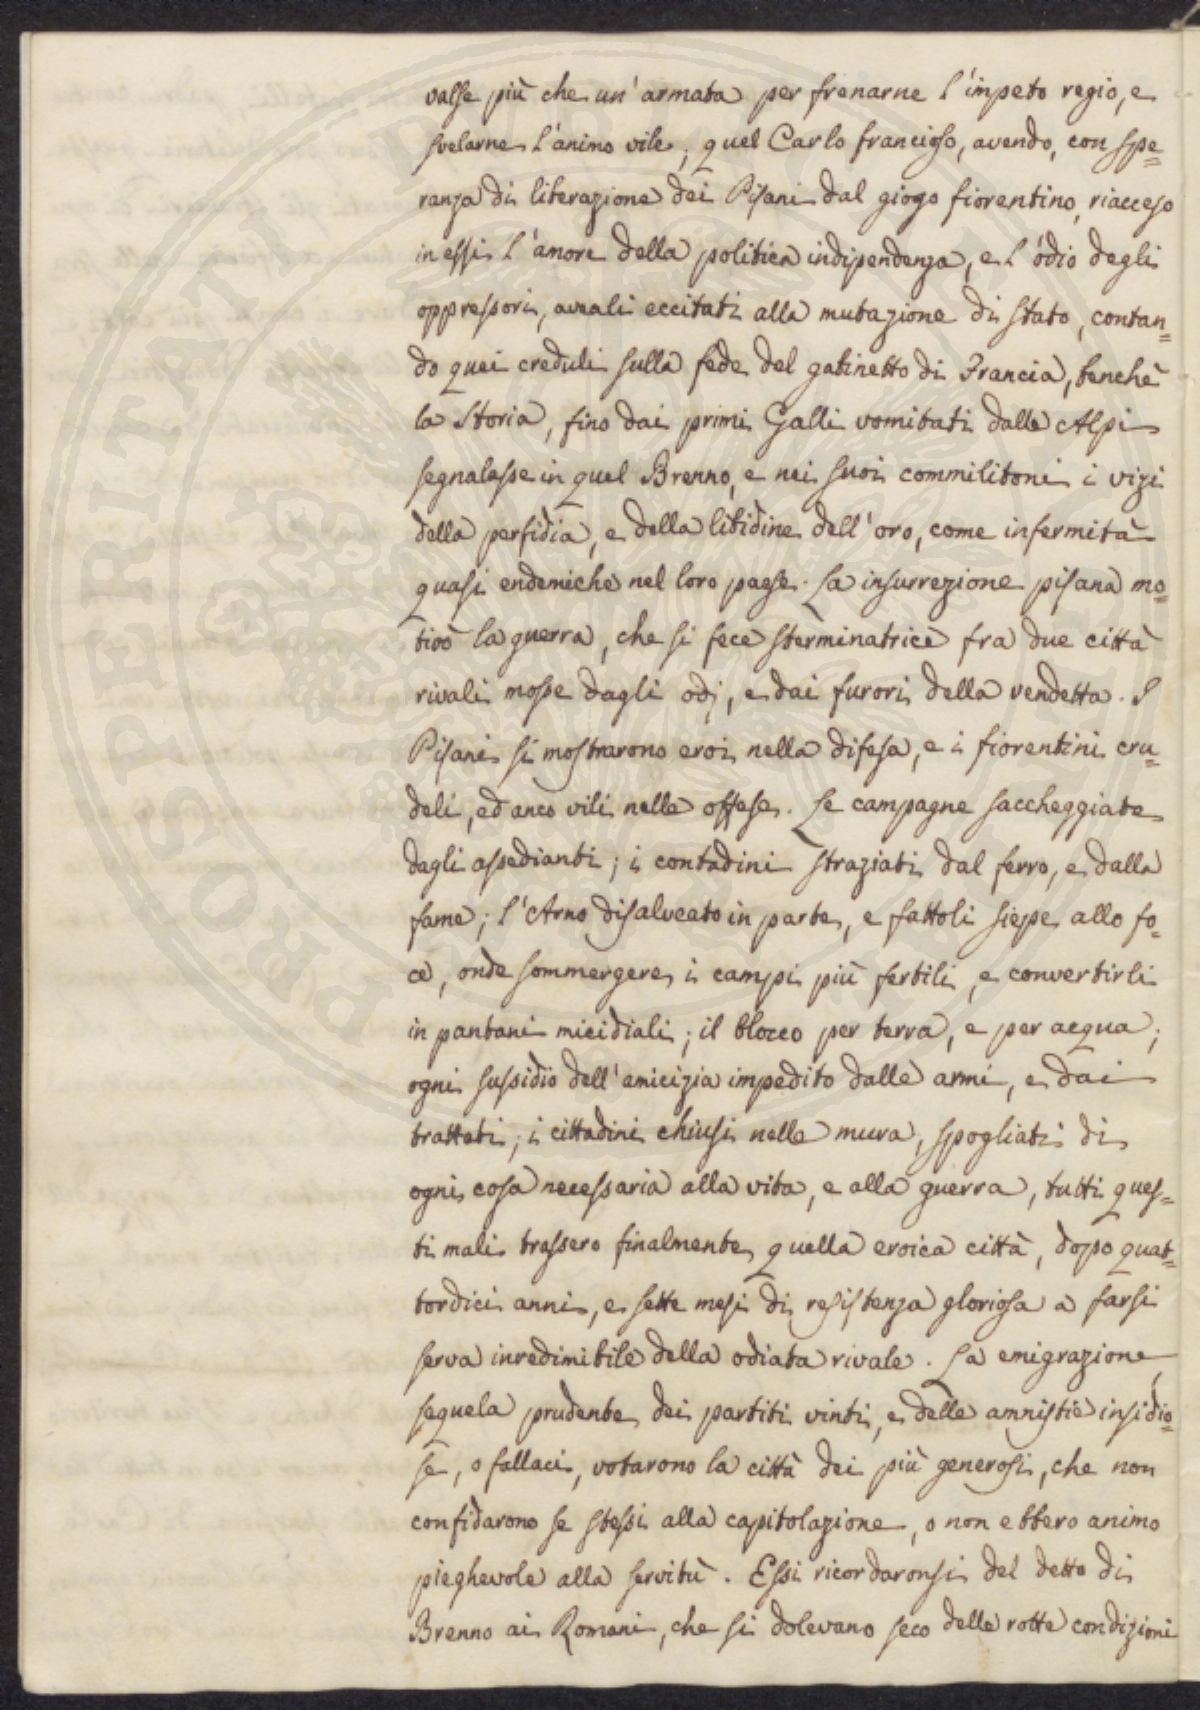 valse più che un' armata per frenarne l'impeto regio, e
svelarne l'animo vile, quel Carlo francioso, avendo, con spe=
ranza di liberazione dei Pisani dal giogo fiorentino, riacceso
in essi l'amore della politica indipendenza, e l'òdio degli
oppressori, aveali eccitati alla mutazione di stato, contan=
do quei creduli sulla fede del gabinetto di Francia, benchè
la Storia, fino dai primi Galli vomitati dalle Alpi
segnalasse in quel Brenno, e nei suoi commilitoni i vizi
della perfidia, e della libidine dell' oro, come infermità
quasi endemiche nel loro paese. La insurrezione pisana mo=
tivò la guerra, che si fece sterminatrice fra due città
rivali mosse dagli odj, e dai furori della vendetta. I
Pisani si mostrarono eroi nella difesa, e i fiorentini cru=
deli, ed anco vili nelle offese. Le campagne saccheggiate
dagli assedianti; i contadini straziati dal ferro, e dalla
fame; l'Arno disalveato in parte, e fattoli siepe allo fo=
ce, onde sommergere i campi più fertili, e convertirli
in pantani micidiali; il blocco per terra, e per acqua;
ogni sussidio dell'amicizia impedito dalle armi, e dai
trattati; i cittadini chiusi nelle mura, spogliati di
ogni cosa necessaria alla vita, e alla guerra, tutti ques=
ti mali trassero finalmente quella eroica città, dopo quat=
tordici anni, e sette mesi di resistenza gloriosa a farsi
serva inredimibile della odiata rivale. La emigrazione
sequela prudente dei partiti vinti, e delle amnistie insidio=
se, o fallaci, votarono la città dei più generosi, che non
confidarono se stessi alla capitolazione, o non ebbero animo
pieghevole alla servitù. Essi ricordaronsi del detto di
Brenno ai Romani, che si dolevano seco delle rotte condizioni
PROSPERITATI PVBL